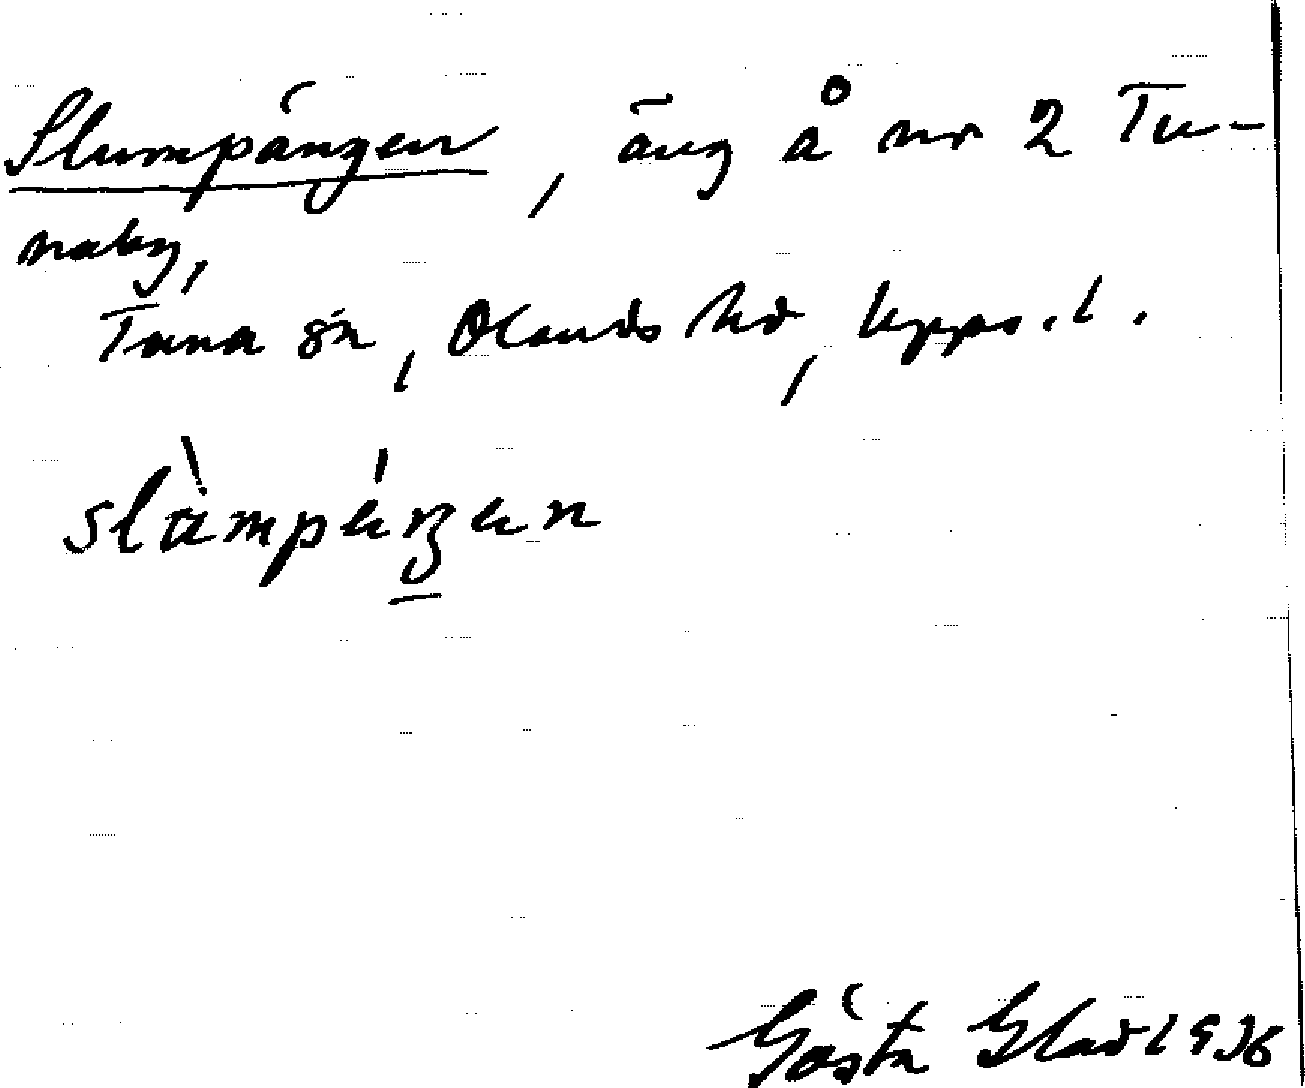 Slumpängen, äng å nr 2 Tu-
naby,
Tuna sn, Olands hd, Upps. l.
slùmpéŋen
Gösta Glad 1936